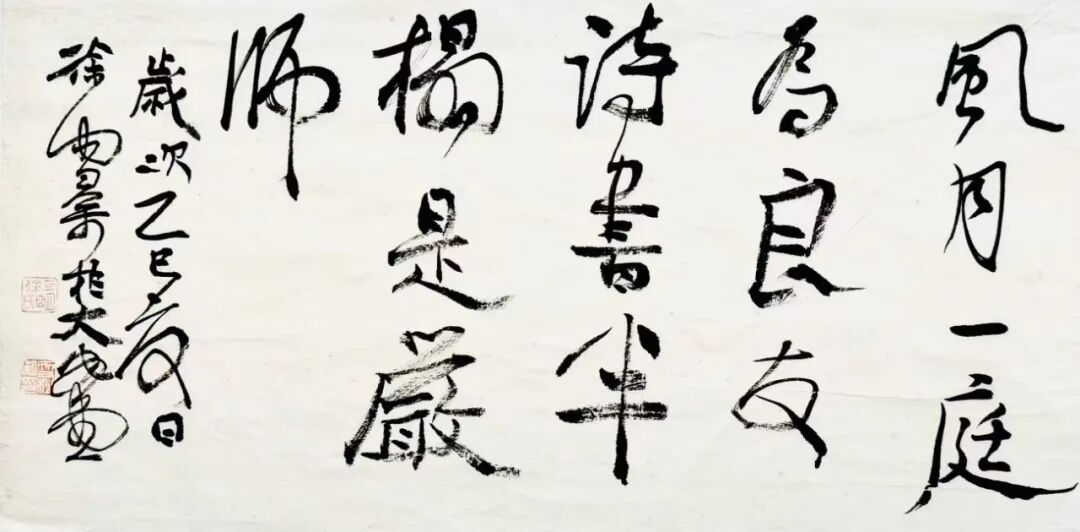 風月一庭
為良友
詩書半
榻是嚴
師
歲次乙巳夏日
徐雲叔於大